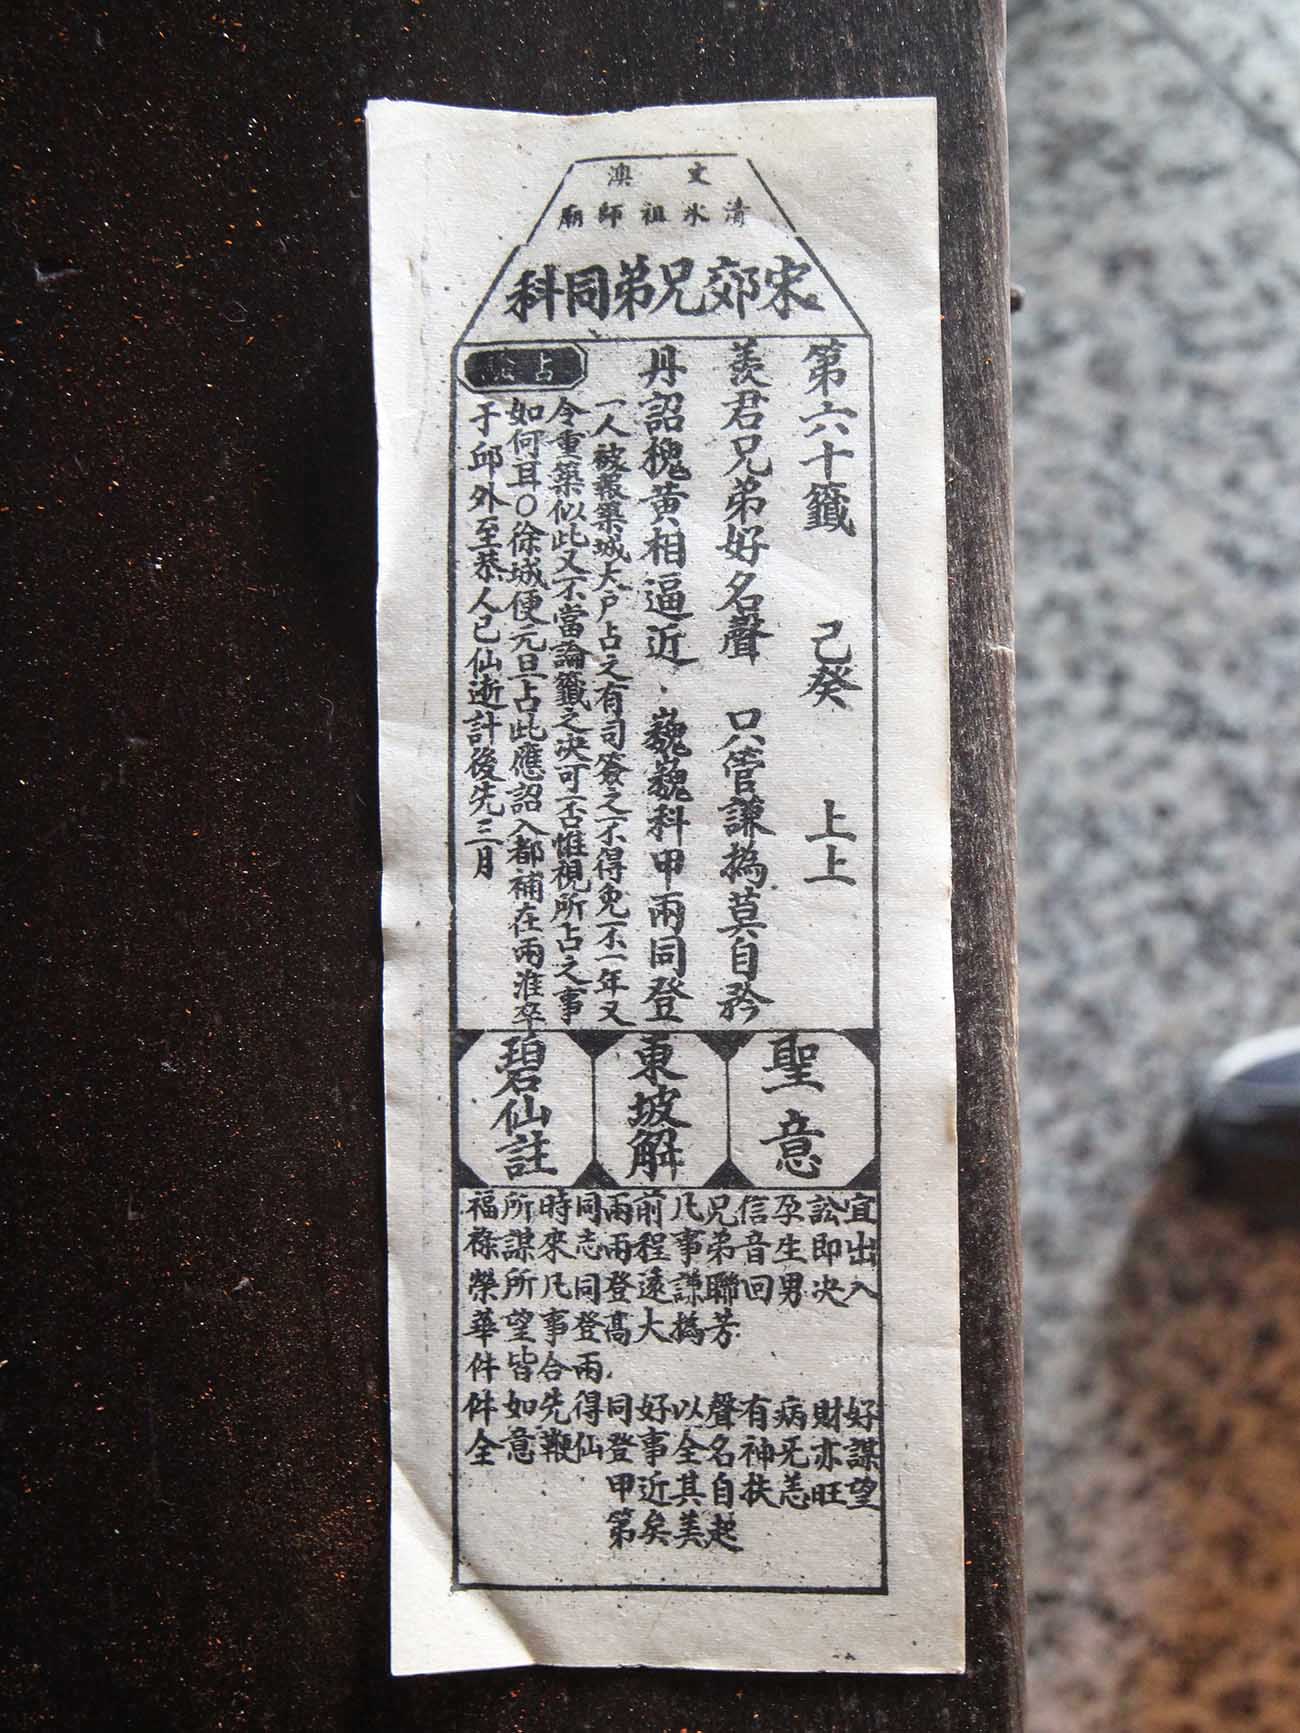 文澳
清水祖師廟
宋郊兄弟同科
第六十籤 己癸 上上
羨君兄弟好名聲 只管謙撝莫自矜
丹詔槐黃相逼近 巍巍科甲兩同登
占驗
一人被報築城大戶占之有司簽之不得免不一年又
令重築似此又不當論籤之決可否惟視所占之事
如何耳○徐城便元旦占此應詔入都補在兩淮卒
于邱外至恭人已仙逝計後先三月
聖意
宜出入 好謀望
訟即決 財亦旺
孕生男 病旡恙
信音回 有神扶
東坡解
兄弟聯芳 聲名自起
凡事謙撝 以全其美
前程遠大 好事近矣
兩兩登高 同登甲第
碧仙註
同志同登兩得仙
時來凡事合先鞭
所謀所望皆如意
福祿榮華件件全